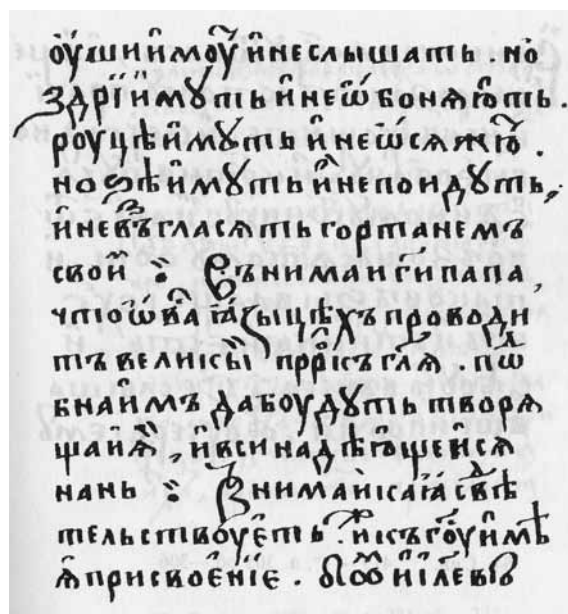 оу҆ши и҆моу҆ть и҆ не слышать . но
здрїи и҆мꙋть и҆ не ѡ҆боняю҆ть .
роуцѣ и҆мꙋть и҆ не ѡ҆сяжю҆ .
но ѕѣ и҆мꙋть и҆ не поидꙋть ,
и҆ не въꙁгласять гортанемъ
свои҆м . Вънимаи гн҃и папа ,
что ѡ҆ в҃а ꙗ҆ꙁыцѣхъ проводи
тъ великыи҆ прр҃къ гл҃я . пѡ
бна и҆мъ да боудуть творя
щаи ꙗ҆ , и҆ вси надѣю҆щеи ся
на нь . Внимаи ісаіа свѣдѣ
тельствоуе҆ть . и къ гоу и҆мѣ
ꙗ҆ присвое҆ніе .